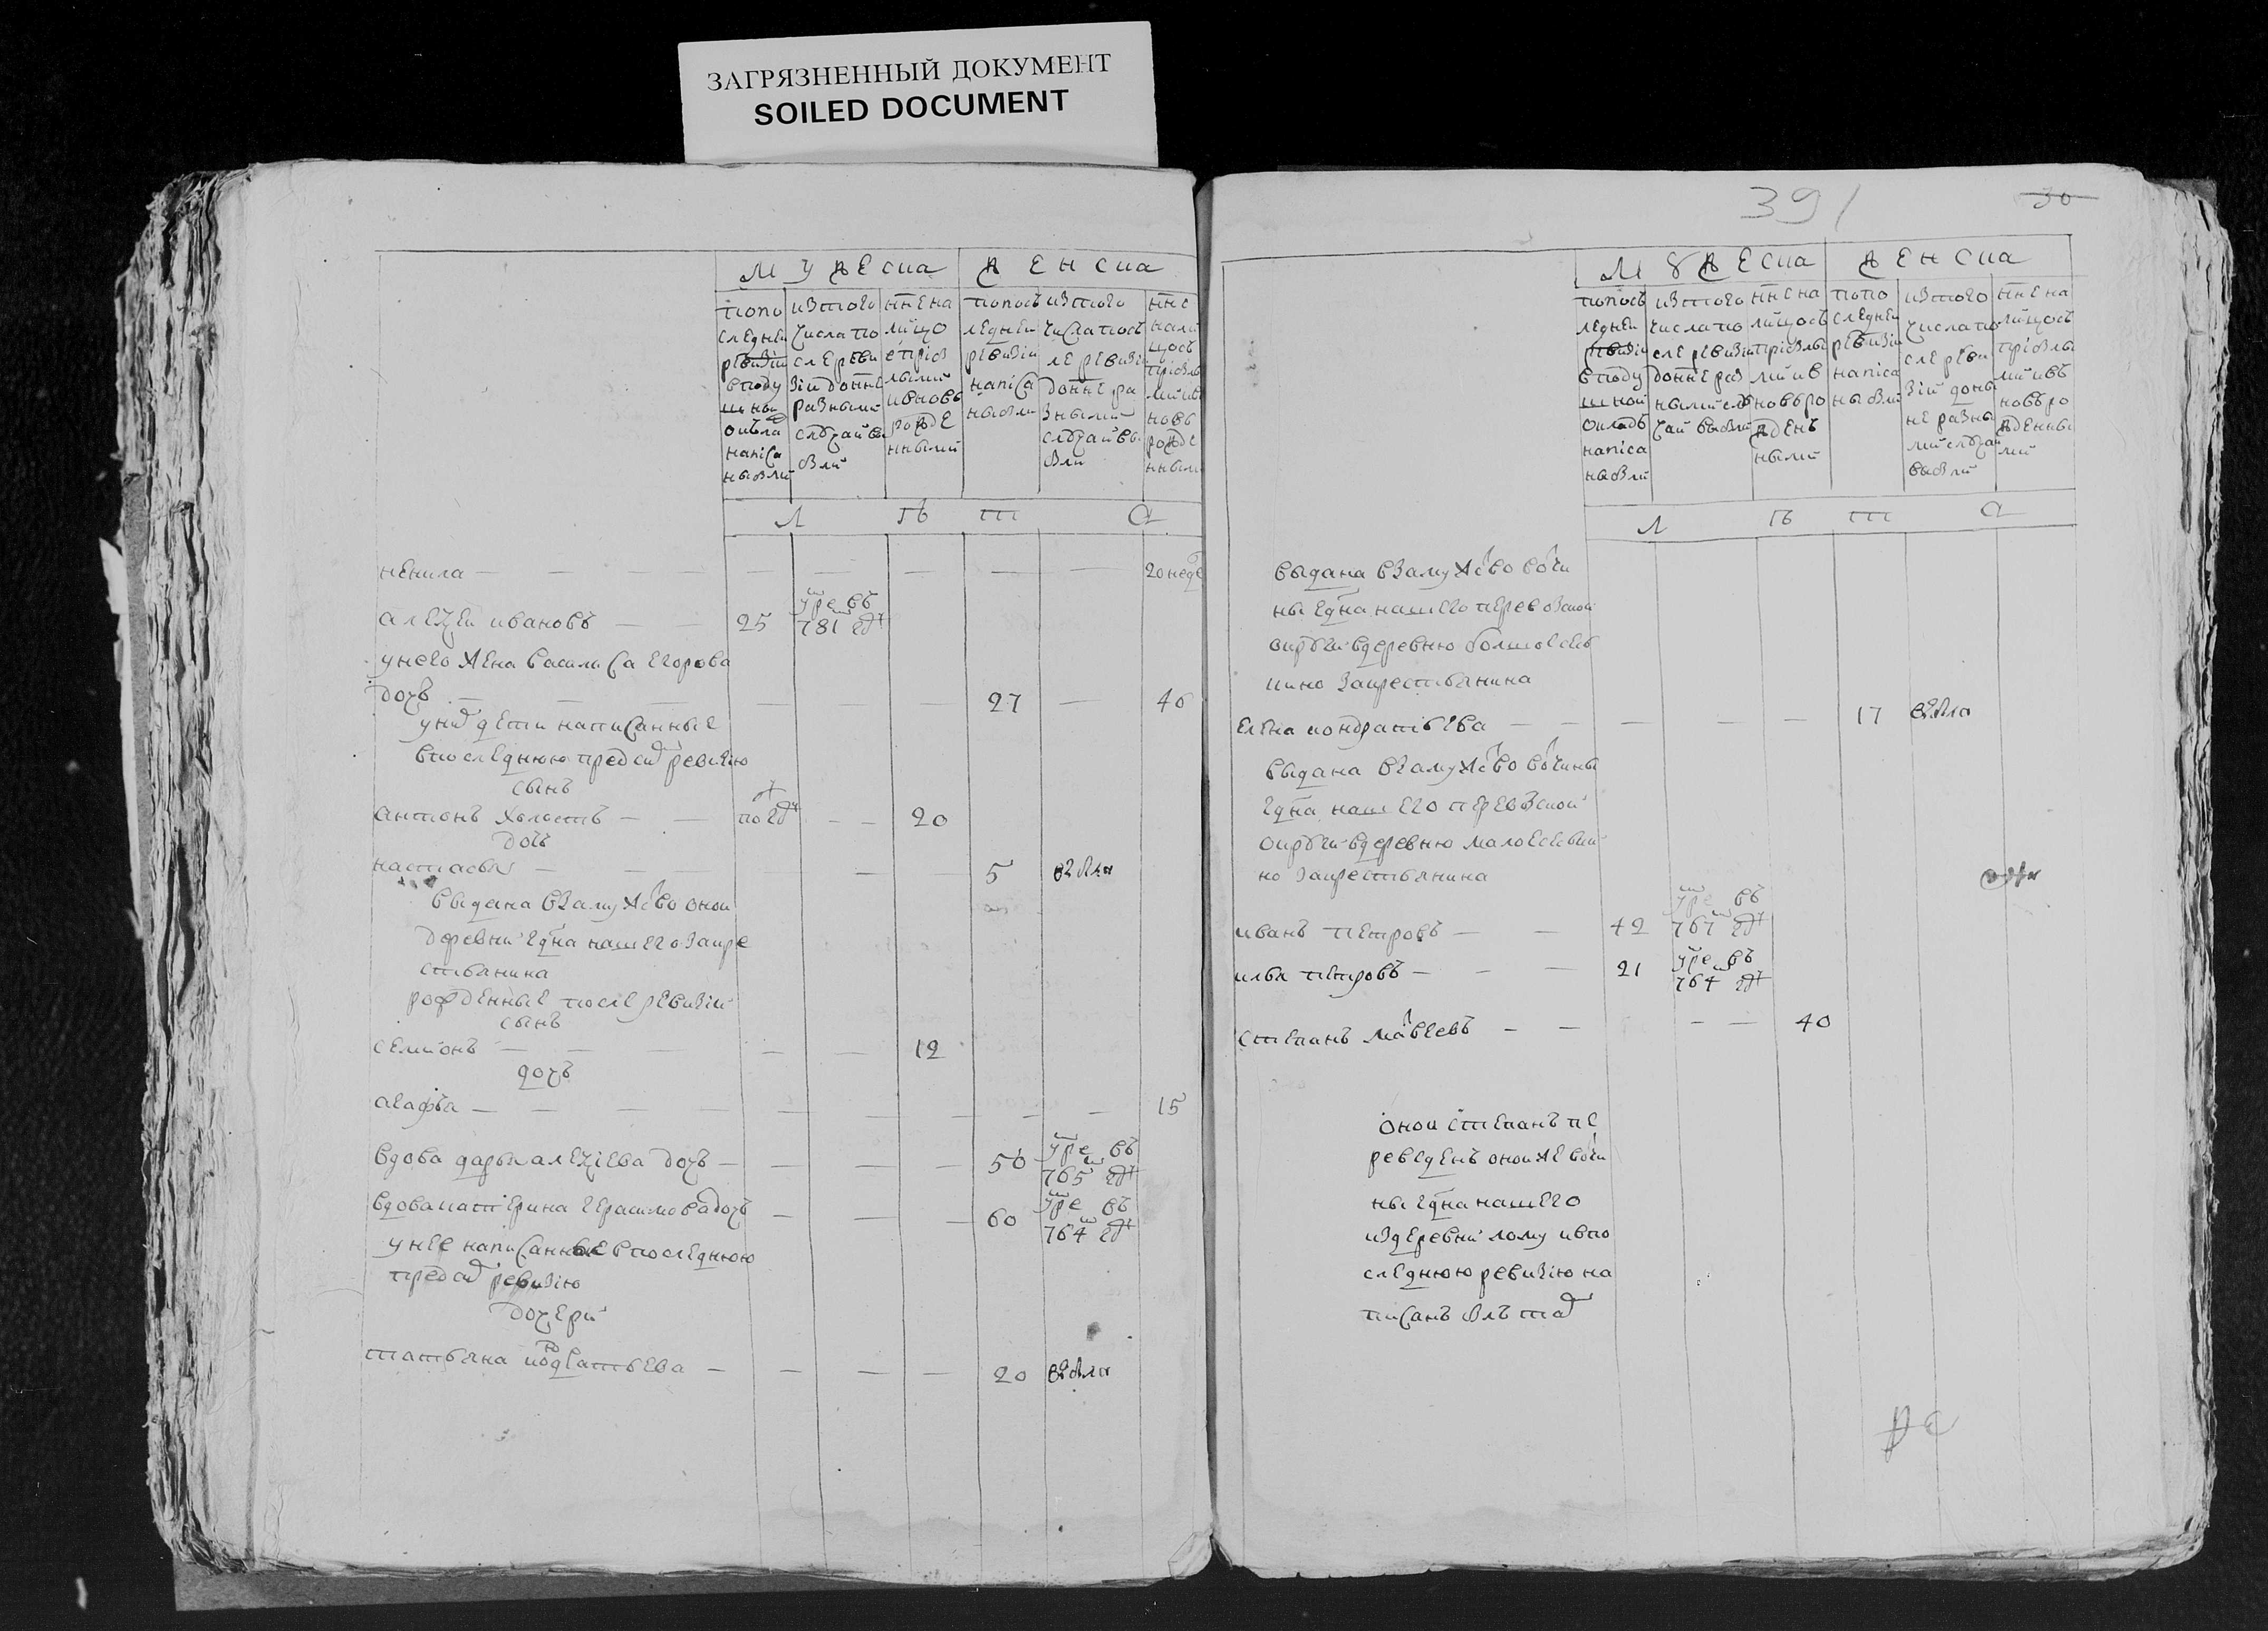 ЗАГРЯЗНЕННЫЙ ДОКУМЕНТ
SOILED DOCUMENT
мужеска женска
по по
следнеи
ревизии
в поду
шныи
окла
написа
ны были
из того
числа по
сле реви
зии до нне
разными
случаи вы
были
нне на
лицо
с прибы
лыми
и вновь
рожде
нными
по пос
леднеи
ревизии
написа
ны были
из того
числа пос
ле ревизии
до нне ра
зными
случаи вы
были
нне
нали
цос
прибы
ми и в
новь
рожде
нными
л ѣ т а
ненила 20 неде
алеѯеи ивановъ 25 умре въ 781 году
у него жена василиса егорова
дочь 27 46
у них дети написанные
в последнюю пред сим ревизию
сынъ
антонъ холостъ по году 20
дочь
настасья 5 выбыла
выдана в замужство онои
деревни гдна нашего за кре
стьянина
рожденные после ревизии
сынъ
семионъ 12
дочь
агафья 15
вдова дарья алеѯиева дочь 50 умре въ 765 году
вдова катерина герасимова дочь 60 умре въ 764 году
у нее написанные в последнюю
пред сим ревизию
дочери
татьяна кодратьева 20 выбыла
391 30
мужеска женска
по пос
леднеи
ревизии
в поду
шнои
окладъ
написа
ны были
из того
числа по
сле ревизии
до нне раз
ными слу
чаи выбыли
нне на
лицо съ
прибылы
ми и в
новь ро
жденъ
ными
по по
следнеи
ревизии
написа
ны были
из того
числа по
сле реви
зии до ны
не разны
ми случаи
выбыли
нне на
лицо съ
прибылы
ми и въ
новь ро
жденны
ми
л ѣ т а
выдана в замужство вочи
ны гдна нашего перевозкои
округи в деревню болшое
кино за крестьянина
елена кондратьева 17 выбыла
выдана в замужство вочины
гдна нашего перевозскои
округи в деревню малое
но за крестьянина
иванъ петровъ 42 умре въ 767 году
илья петровъ 21 умре въ 764 году
степанъ матвеевъ 40
онои степанъ пе
реведенъ онои же вочи
ны гдна нашего
из деревни лому и в по
следнюю ревизию на
писанъ былъ там